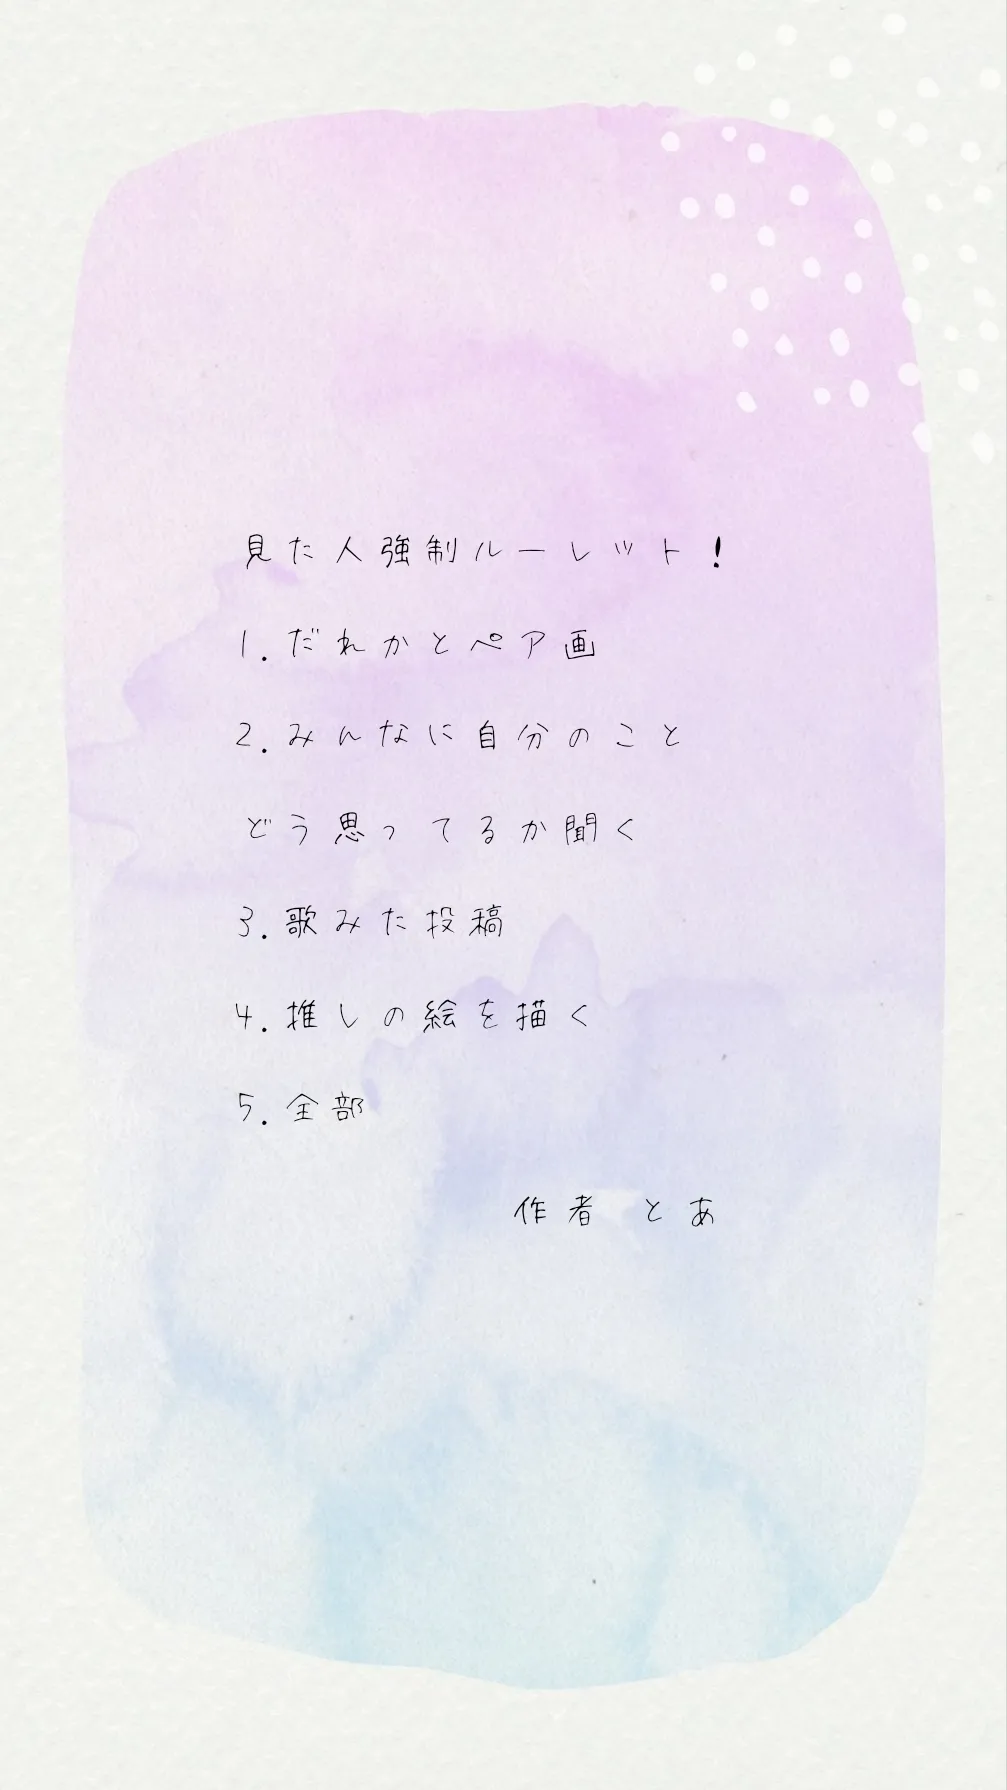 見た人強制ルーレット！
1.だれかとペア画
2.みんなに自分のこと
どう思ってるか聞く
3.歌みた投稿
4.推しの絵を描く
5.全部
作者 とあ